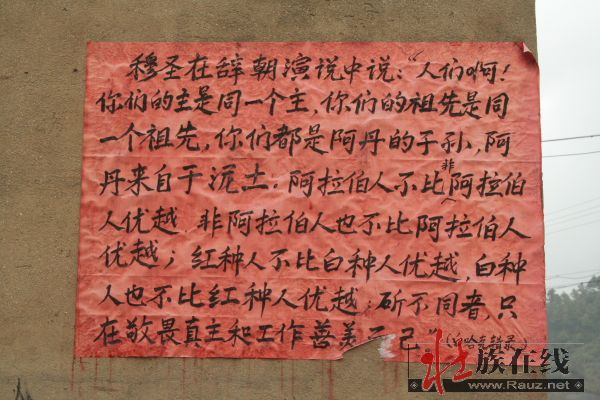 穆圣在辞朝演说中说:“人们啊!
你们的主是同一个主,你们的祖先是同
一个祖先,你们都是阿丹的子孙,阿
丹来自于泥土。阿拉伯人不比非阿拉伯
人优越,非阿拉伯人也不比阿拉伯人
优越;红种人不比白种人优越,白种
人也不比红种人优越;所不同者,只
在敬畏真主和工作善美而已”
族在线
www.Rauz.net